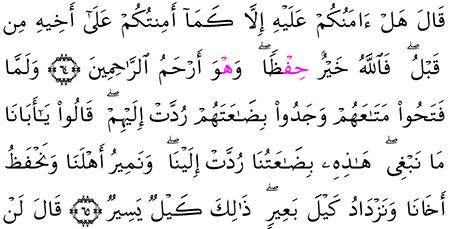 قَالَ هَلْ ءَامَنُكُمْ عَلَيْهِ إِلَّا كَمَآ أَمِنتُكُمْ عَلَىٰٓ أَخِيهِ مِن
قَبْلُ ۖ فَٱللَّهُ خَيْرٌ حِفْظًا ۖ وَهْوَ أَرْحَمُ ٱلرَّٰحِمِينَ ٦٤ وَلَمَّا
فَتَحُوا۟ مَتَٰعَهُمْ وَجَدُوا۟ بِضَٰعَتَهُمْ رُدَّتْ إِلَيْهِمْ ۖ قَالُوا۟ يَٰٓأَبَانَا
مَا نَبْغِى ۖ هَٰذِهِۦ بِضَٰعَتُنَا رُدَّتْ إِلَيْنَا ۖ وَنَمِيرُ أَهْلَنَا وَنَحْفَظُ
أَخَانَا وَنَزْدَادُ كَيْلَ بَعِيرٍ ۖ ذَٰلِكَ كَيْلٌ يَسِيرٌ ٦٥ قَالَ لَنْ